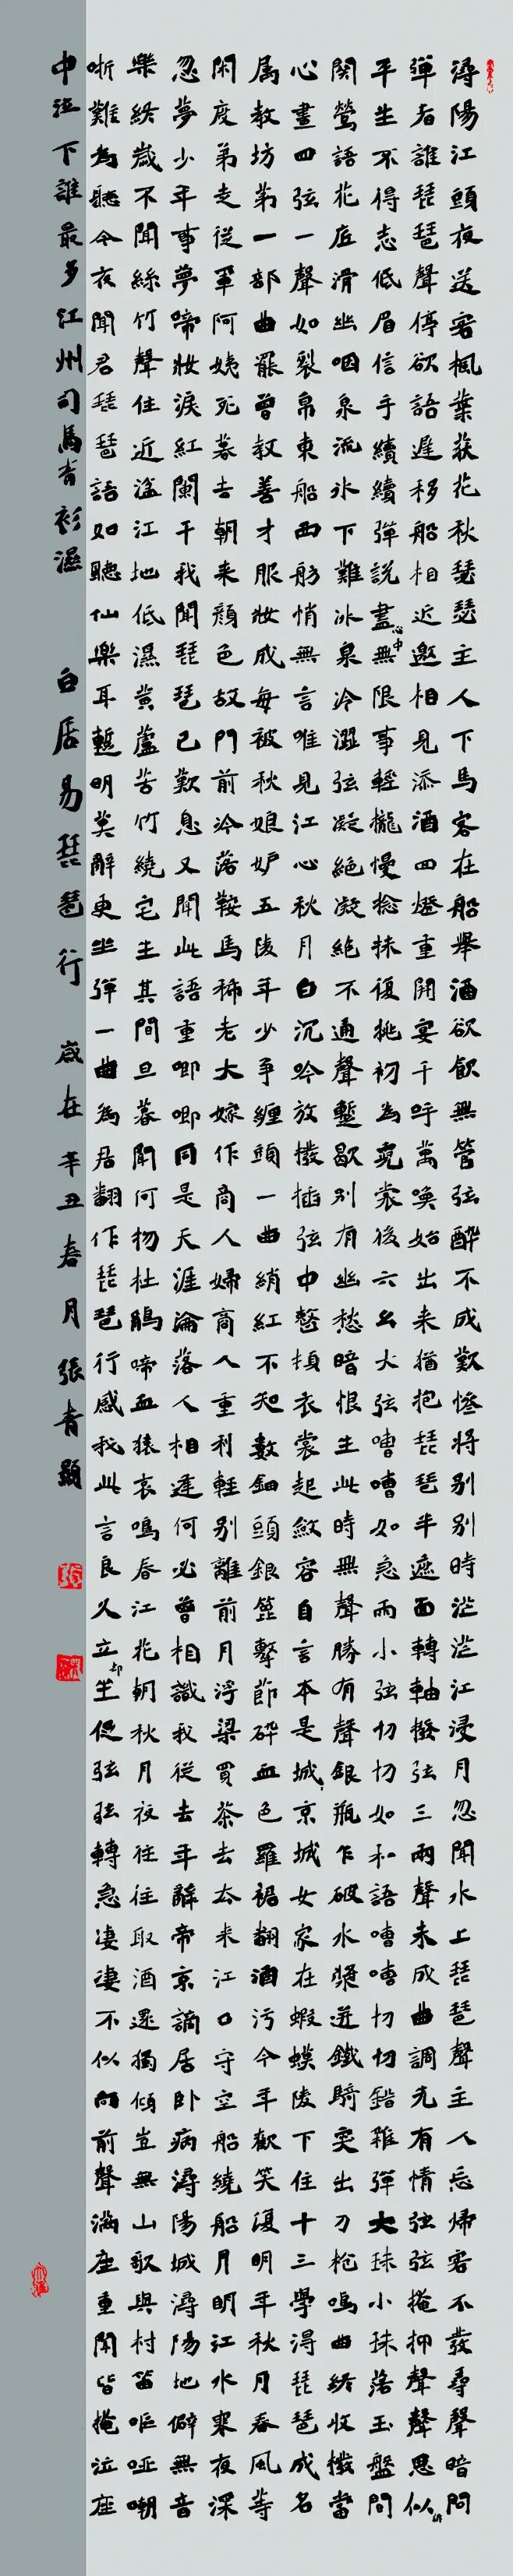 潯陽江頭夜送客楓葉荻花秋瑟瑟主人下馬客在船舉酒欲飲無管弦醉不成歡慘將别别時茫茫江浸月忽聞水上琵琶聲主人忘歸客不發尋聲暗問
彈者誰琵琶聲停欲語遲移船相近邀相見添酒回燈重開宴千呼萬喚始出来猶抱琵琶半遮面轉軸撥弦三兩聲未成曲調先有情弦弦掩抑聲聲思似訴
平生不得志低眉信手續續彈説盡心中無限事輕攏慢捻抹復挑初為霓裳後六幺大弦嘈嘈如急雨小弦切切如私語嘈嘈切切錯雜彈大珠小珠落玉盤間
関鶯語花底滑幽咽泉流氷下難氷泉冷澀弦凝絶凝絶不通聲蹔歇别有幽愁暗恨生此時無聲勝有聲銀瓶乍破水漿迸鐵騎突出刀槍鳴曲終收撥當
心畫四弦一聲如裂帛東船西舫悄無言唯見江心秋月白沉吟放撥插弦中整頓衣裳起斂容自言本是城京城女家在蝦蟆陵下住十三學得琵琶成名
属教坊第一部曲罷曾教善才服妝成每被秋娘妒五陵年少爭纏頭一曲綃紅不知數鈿頭銀篦擊節碎血色羅裙翻酒污今年歡笑復明年秋月春風等
閑度弟走從軍阿姨死暮去朝来顔色故門前冷落鞍馬稀老大嫁作商人婦商人重利輕别離前月浮梁買茶去去来江口守空船繞船月明江水寒夜深
忽夢少年事夢啼妝淚紅闌干我聞琵琶已歎息又聞此語重唧唧同是天涯淪落人相逢何必曾相識我從去年辭帝京謫居卧病潯陽城潯陽地僻無音
樂終歲不聞絲竹聲住近湓江地低濕黄蘆苦竹繞宅生其間旦暮聞何物杜鵑啼血猿哀鳴春江花朝秋月夜往往取酒還獨傾豈無山歌與村笛嘔啞嘲
哳難為聽今夜聞君琵琶語如聽仙樂耳蹔明莫辭更坐彈一曲為君翻作琵琶行感我此言良久立却坐促弦弦轉急凄凄不似向前聲滿座重聞皆掩泣座
中泣下誰最多江州司馬青衫濕 白居易琵琶行 歲在辛丑春月張青顯